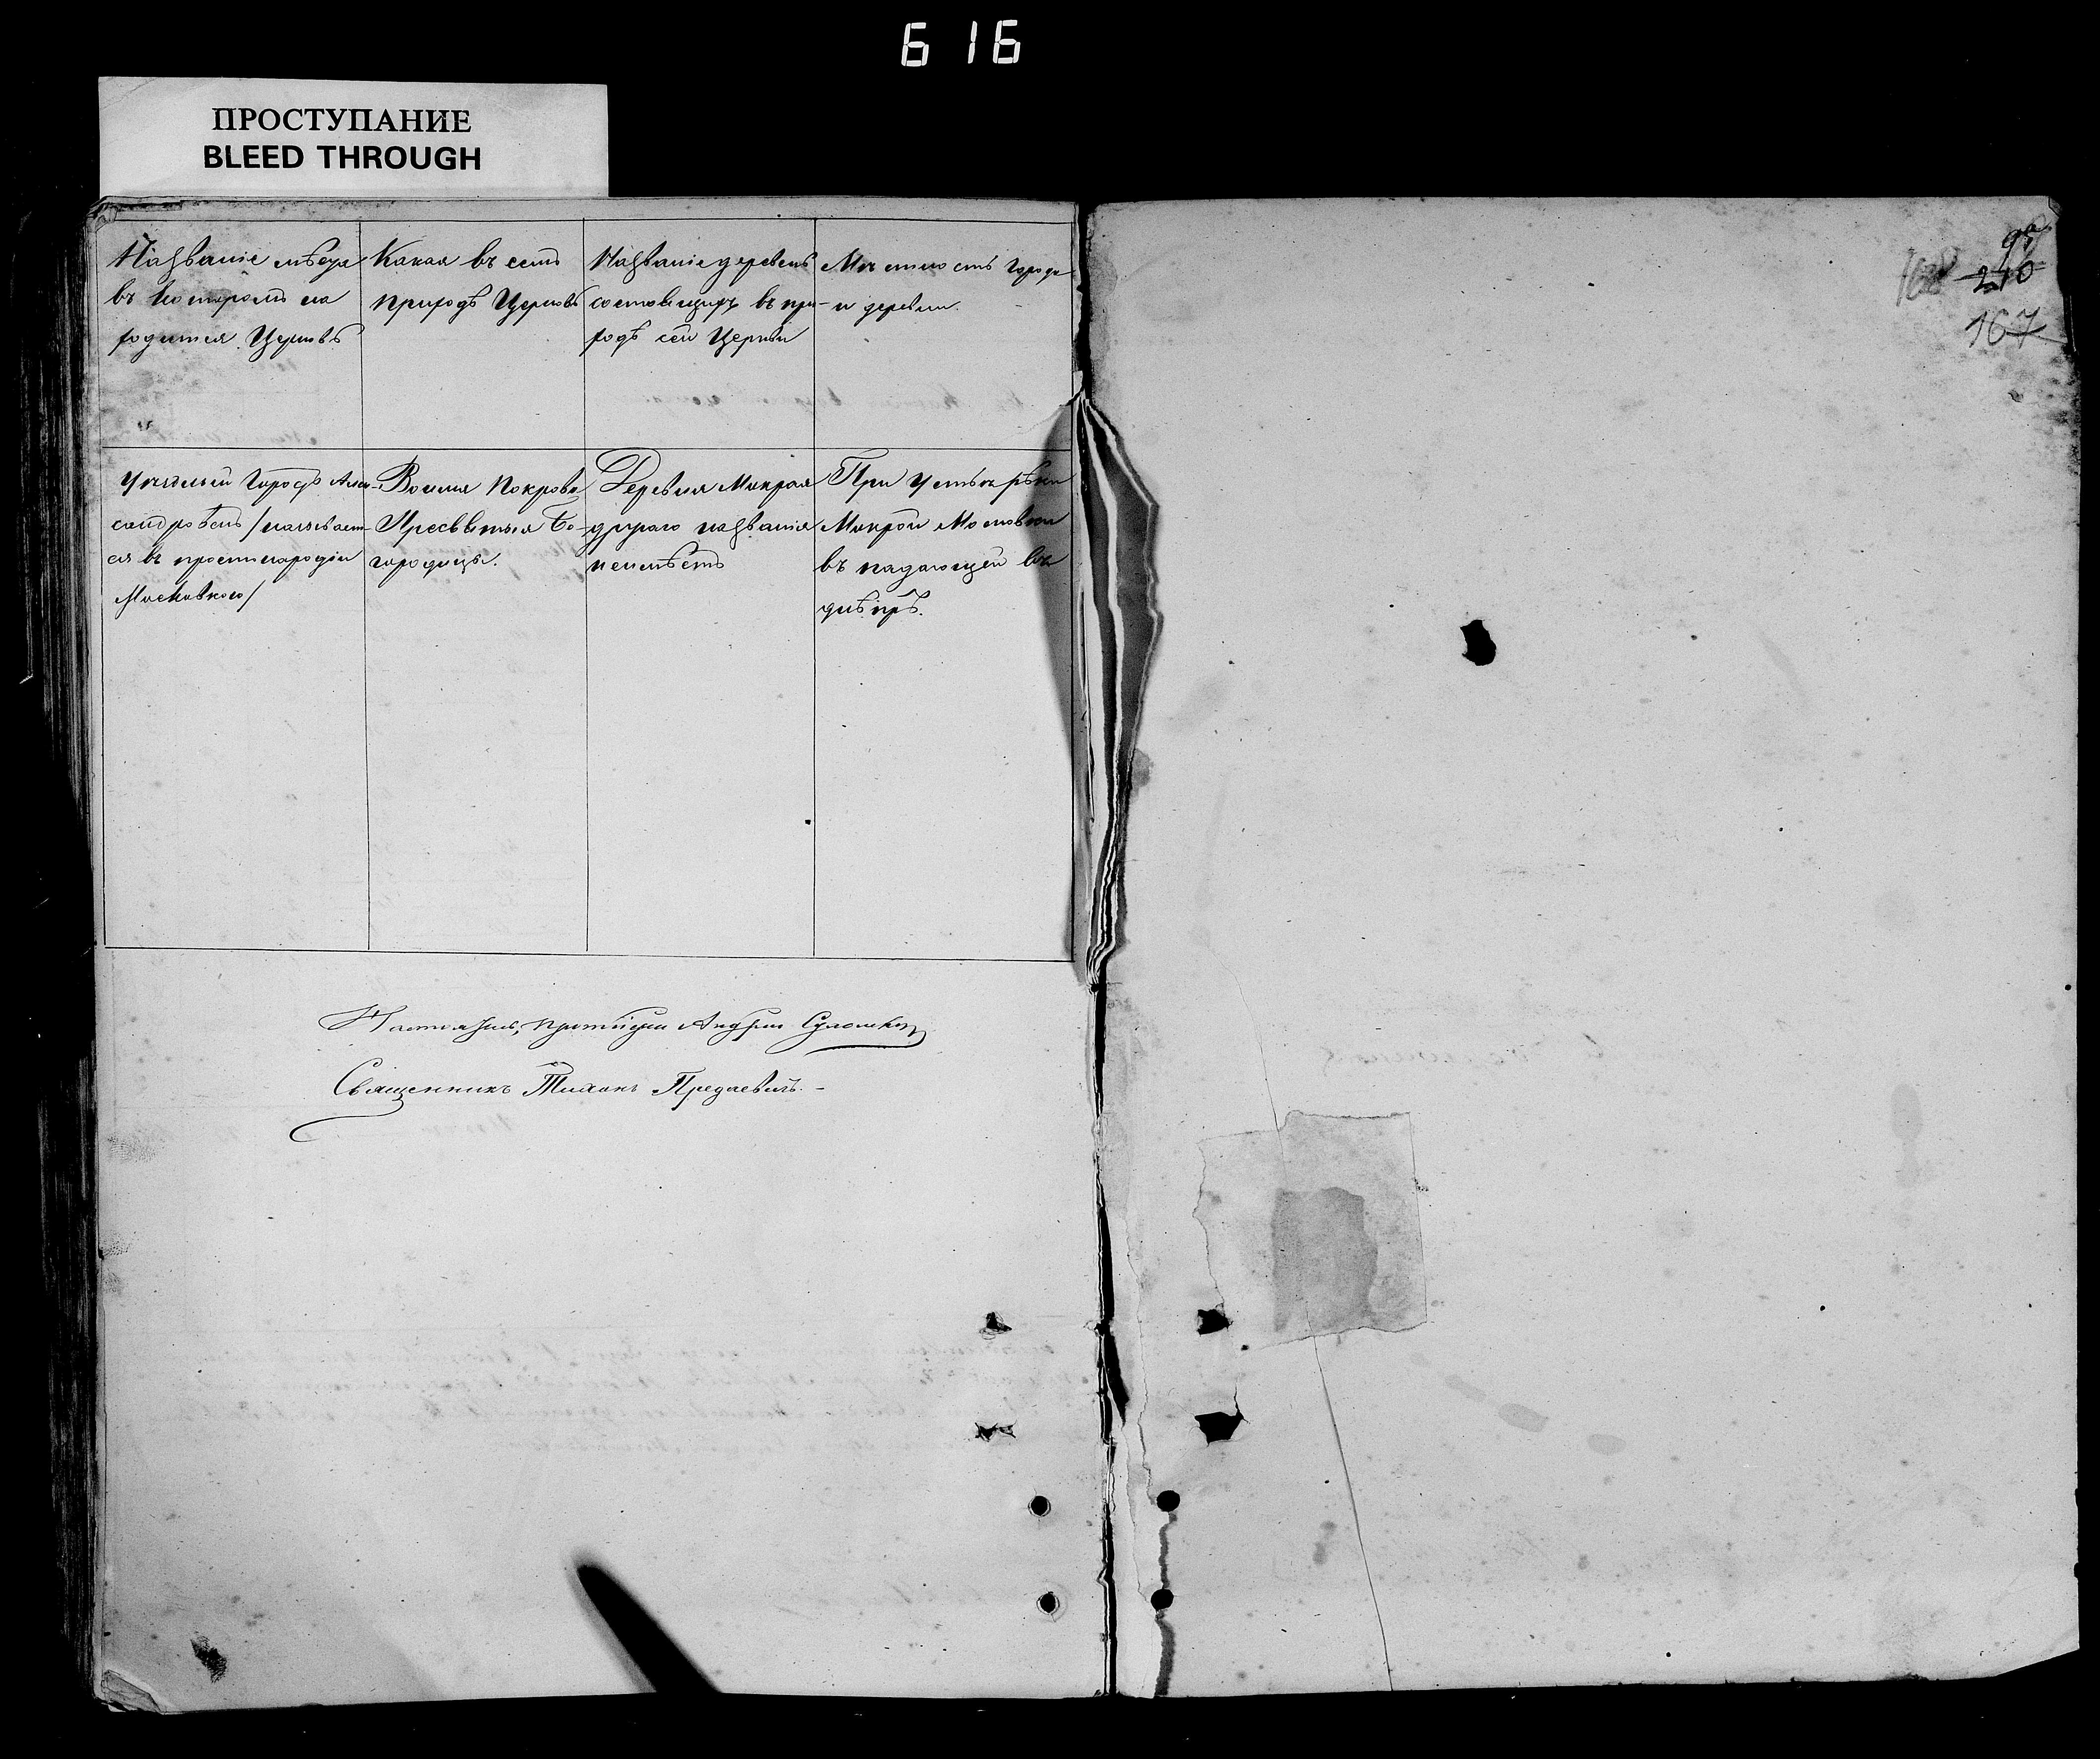 616
ПРОСТУПАНИЕ
BLEED THROUGH
95
168 210
167
Названіе мѣста
въ которомъ на
ходится Церковь
Какая въ семъ
приходѣ Церковь
Названіе деревень
состоящихъ въ при-
ходѣ сей Церкви
Мѣстность города
и деревни.
Уѣздный Городъ Алек-
сандровскъ /называет-
ся въ простонародіи
Московкою/
Воимя Покрова
Пресвятыя Бо-
городицы.
Деревня Мокрая
другаго названія
неимѣетъ
При устьѣ рѣки
Мокрой Московки
въ падающей въ
днѣпръ.
Настоятель, протоіерей Андрей
Священникъ Тихонъ